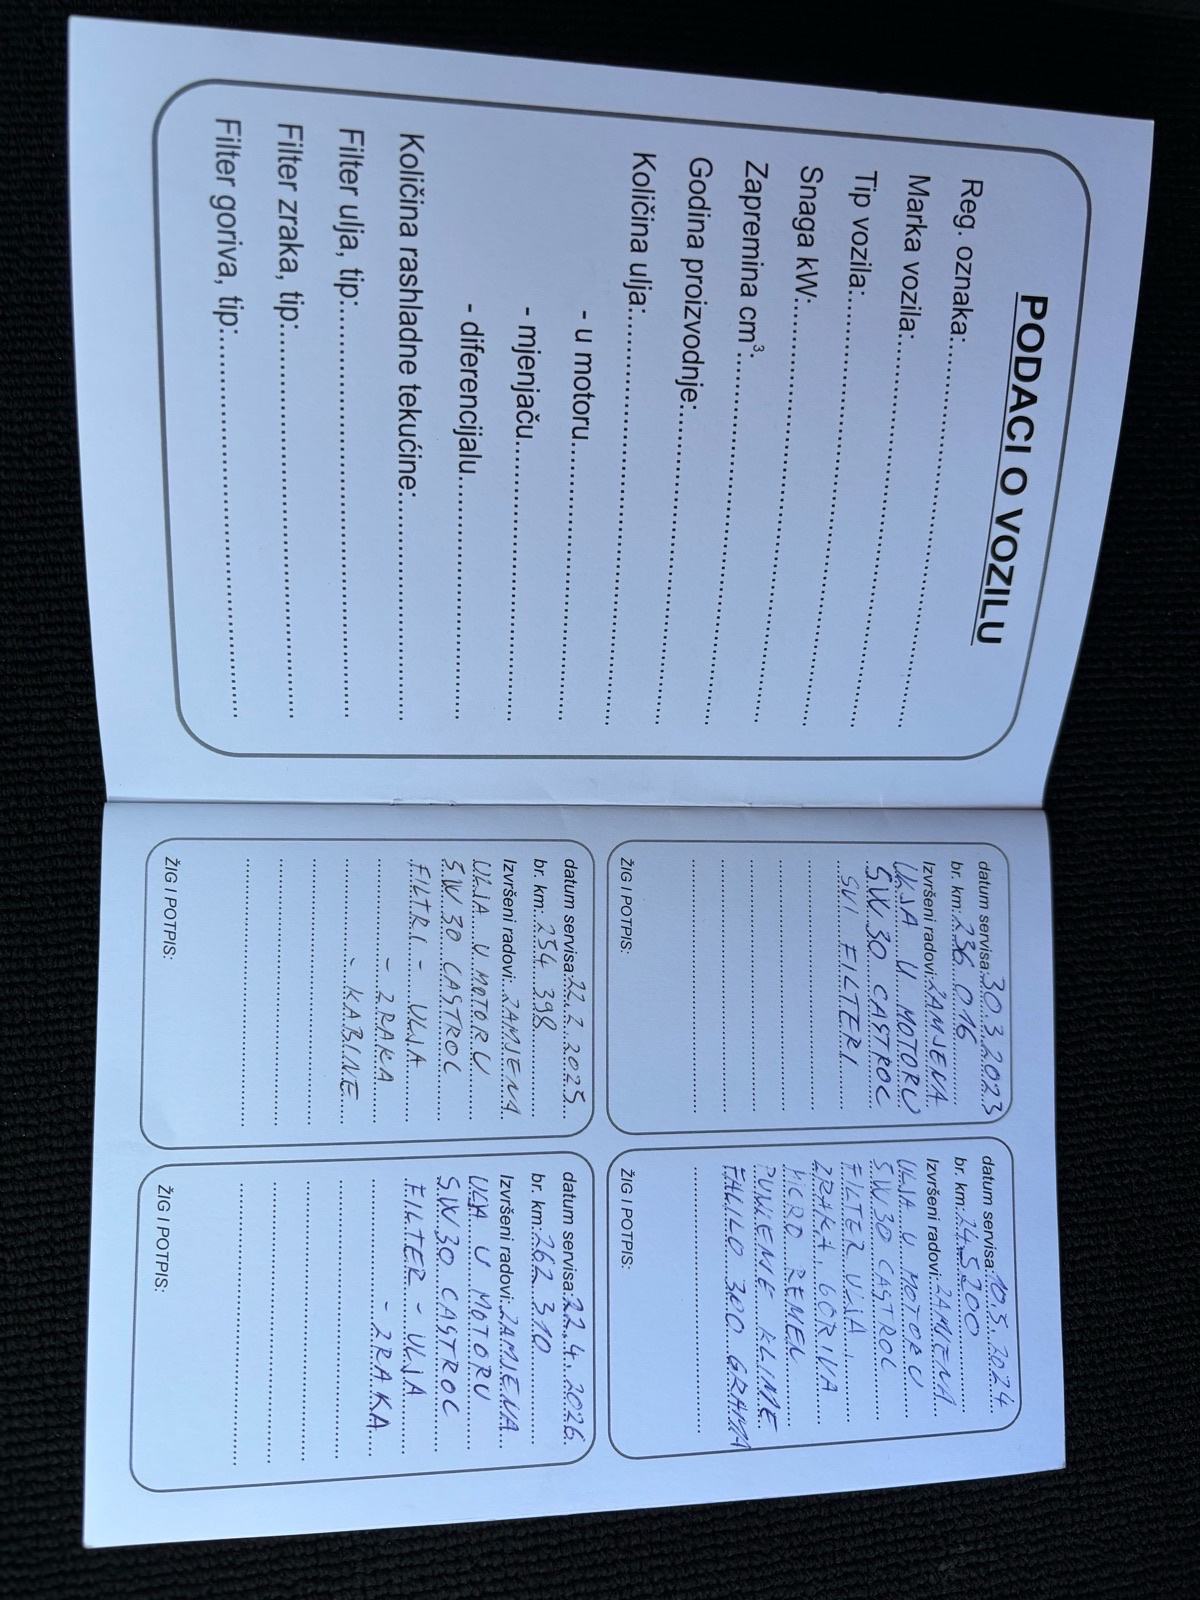 PODACI O VOZILU
Reg. oznaka:
Marka vozila:
Tip vozila:
Snaga kW:
Zapremina cm³
Godina proizvodnje:
Količina ulja:
- u motoru
- mjenjaču
- diferencijalu
Količina rashladne tekućine:
Filter ulja, tip:
Filter zraka, tip:
Filter goriva, tip:
datum servisa: 30.3.2023
br. km: 236 016
Izvršeni radovi: ZAMJENA
ULJA U MOTORU
5W30 CASTROL
SVI FILTERI
ŽIG I POTPIS:
datum servisa: 10.5.2024
br. km: 245200
Izvršeni radovi: ZAMJENA
ULJA U MOTORU
5W30 CASTROL
FILTER ULJA,
ZRAKA, GORIVA
MICRO REMEN
PUNJENJE KLIME
FALILO 300 GRAMA
ŽIG I POTPIS:
datum servisa: 22.2.2025
br. km: 254 398
Izvršeni radovi: ZAMJENA
ULJA U MOTORU
5W30 CASTROL
FILTRI - ULJA
- ZRAKA
- KABINE
ŽIG I POTPIS:
datum servisa: 22.4.2026.
br. km: 262 310
Izvršeni radovi: ZAMJENA
ULJA U MOTORU
5W30 CASTROL
FILTER - ULJA
- ZRAKA
ŽIG I POTPIS: